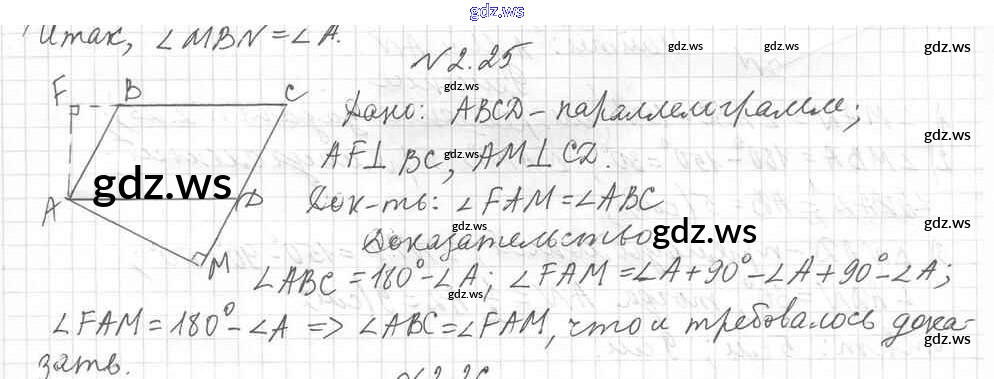 gdz.ws
Итак, ∠MBN=∠A.
N2.25
gdz.ws
gdz.ws
gdz.ws
F B C
gdz.ws
Дано: ABCD – параллелограмм;
gdz.ws
AF⊥BC, AM⊥CD.
gdz.ws
gdz.ws
A D
Док-ть: ∠FAM=∠ABC
gdz.ws
gdz.ws
Доказательство
gdz.ws
M
∠ABC=180°-∠A; ∠FAM=∠A+90°-∠A+90°-∠A;
gdz.ws
∠FAM=180°-∠A => ∠ABC=∠FAM, что и требовалось дока-
gdz.ws
зать.
N2.26